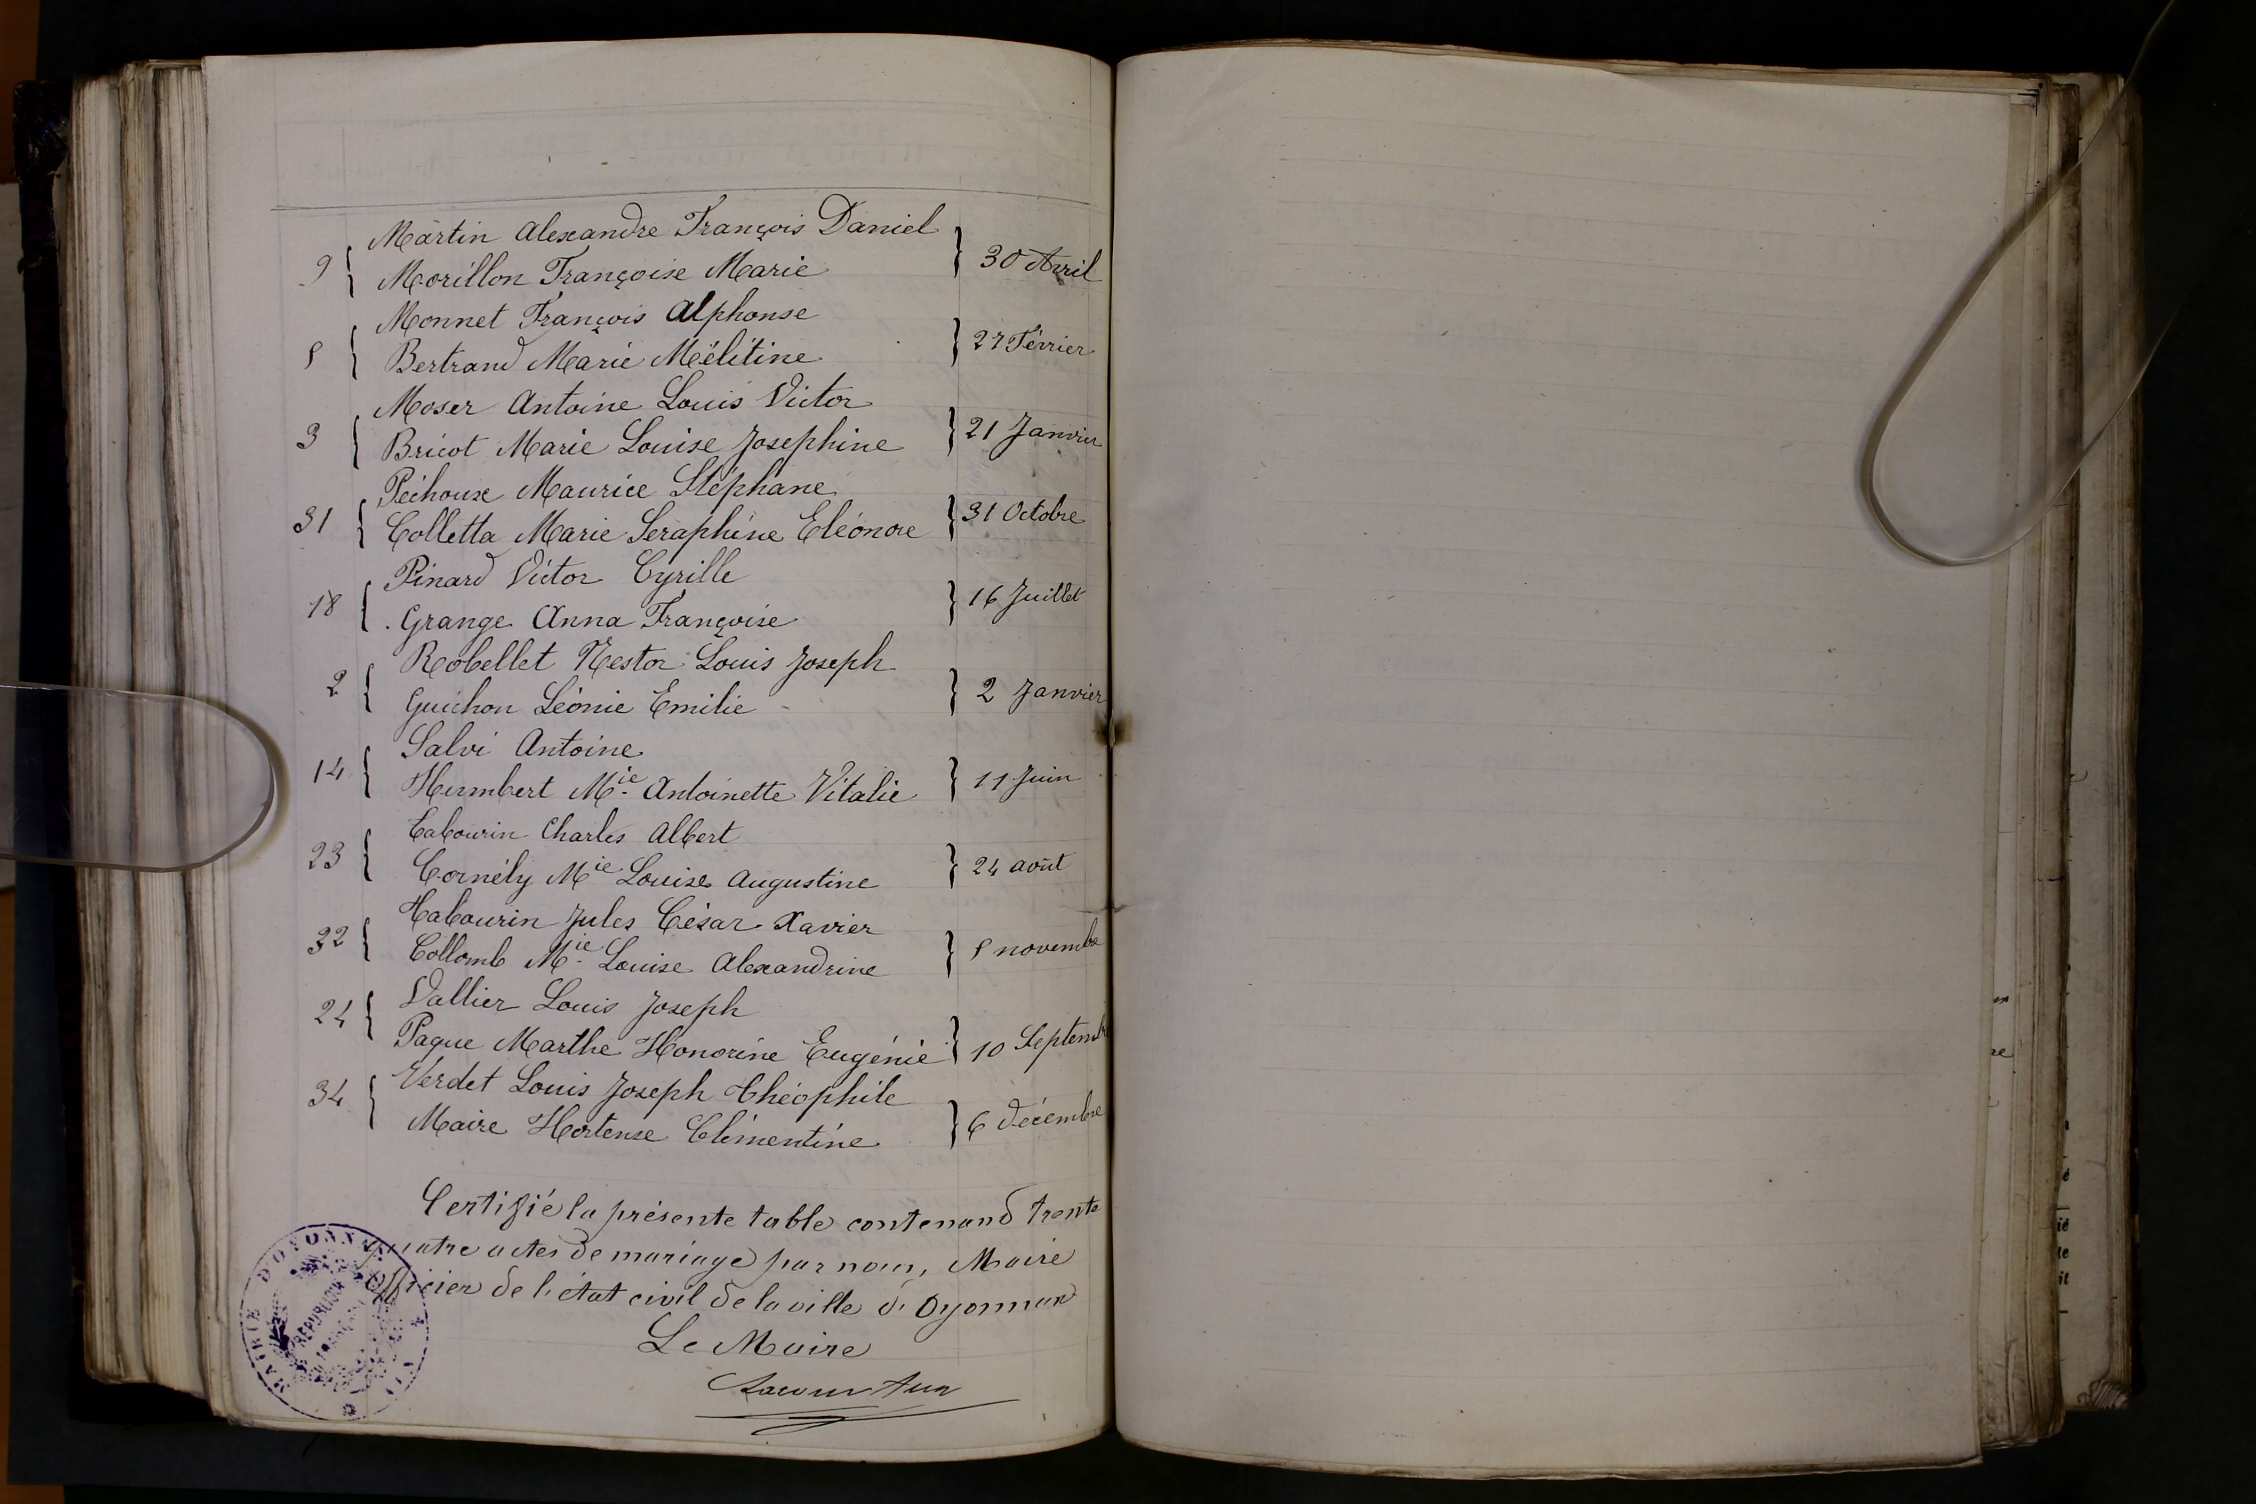 Martin Alexandre François Daniel
9 { Morillon Françoise Marie } 30 Avril
Monnet François Alphonse
8 { Bertrand Marie Mélitine } 27 Février
Moser Antoine Louis Victor
3 { Bricot Marie Louise Josephine } 21 Janvier
Péchoux Maurice Stéphane
31 { Colletta Marie Seraphine Eléonore } 31 Octobre
Pinard Victor Cyrille
18 { Grange Anna Françoise } 16 Juillet
Robellet Nestor Louis Joseph
2 { Guichon Léonie Emilie } 2 Janvier
Salvi Antoine
14 { Humbert Mie Antoinette Vitalie } 11 Juin
Tabourin Charles Albert
23 { Cornély Mie Louise Augustine } 24 août
Tabourin Jules César Xavier
32 { Collomb Mie Louise Alexandrine } 8 novembre
Vallier Louis Joseph
24 { Pague Marthe Honorine Eugénie } 10 Septembre
Verdet Louis Joseph Théophile
34 { Maire Hortense Clémentine } 6 décembre
Certifié la présente table contenand trente
quatre actes de mariage par nous, Maire
Officier de l'état civil de la ville d'Oyonnax
Le Maire
MAIRIE D'OYONNAX
RÉPUBLIQUE